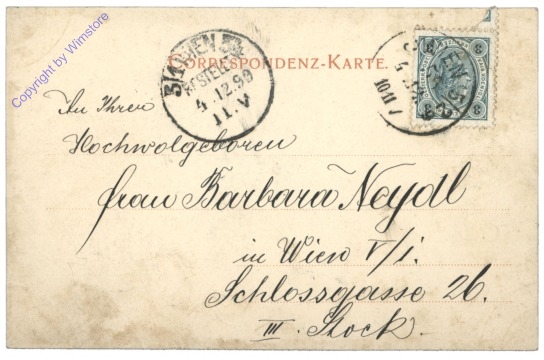 Copyright by Wimstore
CORRESPONDENZ-KARTE.
3/1 WIEN 5/1
BESTELLT
4.12.99
11.V
WIEN 5
4.12.99
An Ihren
Hochwolgeboren
frau Barbara Neydl
in Wien V/i.
Schlossgasse 26.
III. Stock.